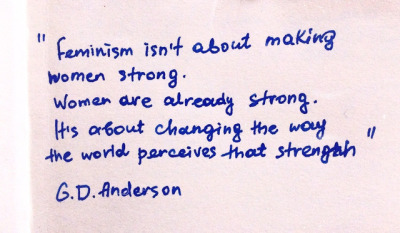 " Feminism isn't about making
women strong.
Women are already strong.
It's about changing the way
the world perceives that strength "
G.D. Anderson